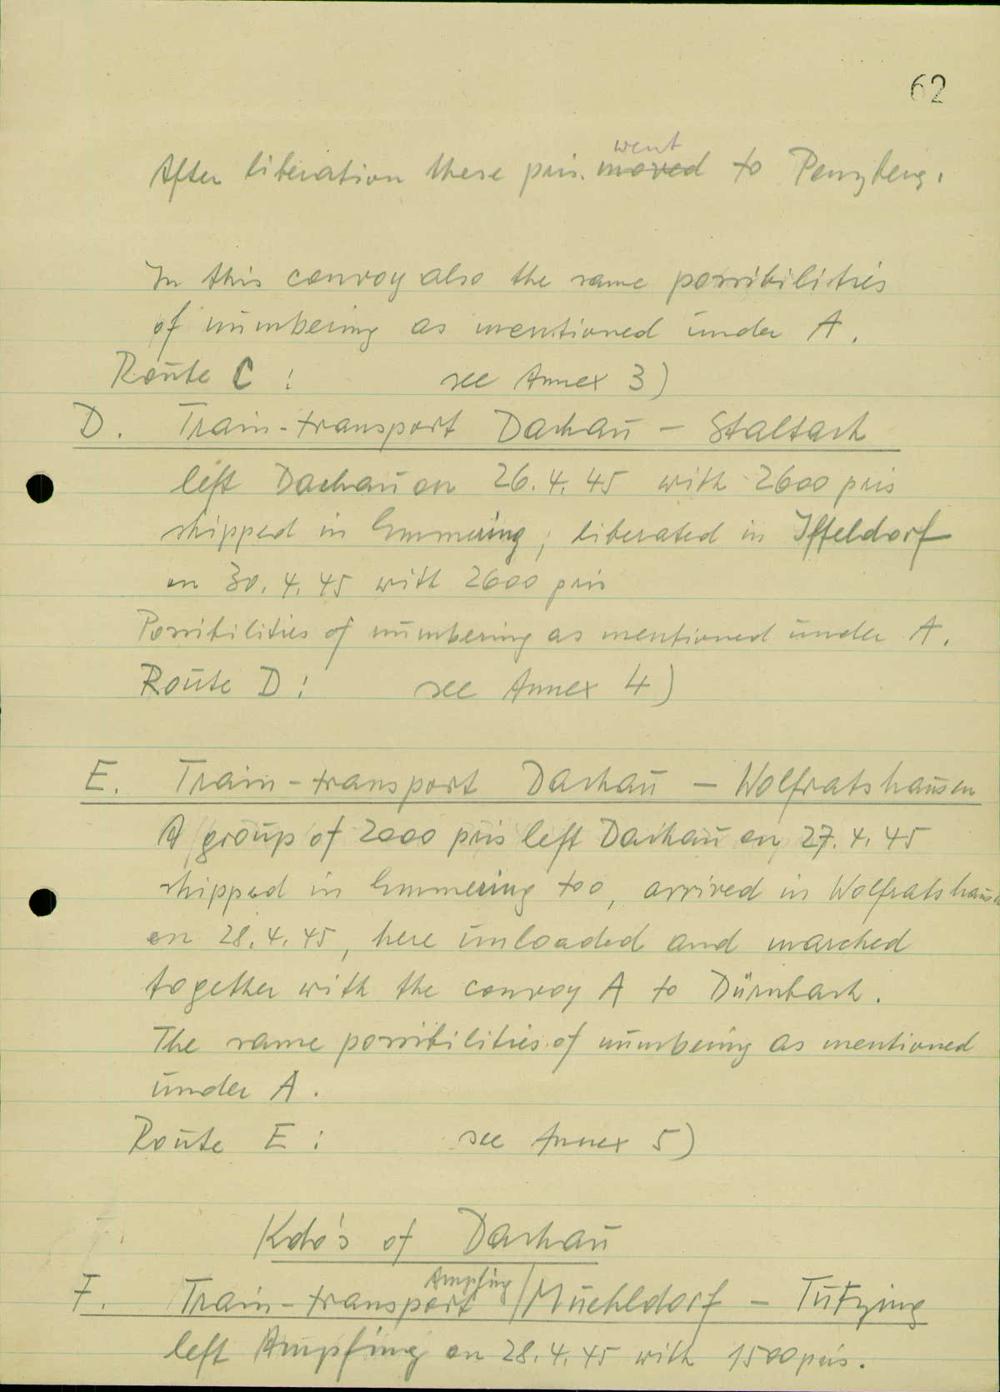 62
After liberation these pris. went moved to Penzberg.
In this convoy also the same possibilities
of numbering as mentioned under A.
Route C : see Annex 3)
D. Train-transport Dachau - Staltach
left Dachau on 26.4.45 with 2600 pris
shipped in Emmering, liberated in Iffeldorf
on 30.4.45 with 2600 pris
Possibilities of numbering as mentioned under A.
Route D : see Annex 4)
E. Train-transport Dachau - Wolfratshausen
A group of 2000 pris left Dachau on 27.4.45
shipped in Emmering too, arrived in Wolfratshausen
on 28.4.45, here unloaded and marched
together with the convoy A to Dürnbach.
The same possibilities of numbering as mentioned
under A.
Route E : see Annex 5)
Kdo's of Dachau
F. Train-transport Ampfing / Muehldorf - Tutzing
left Ampfing on 28.4.45 with 1500 pris.